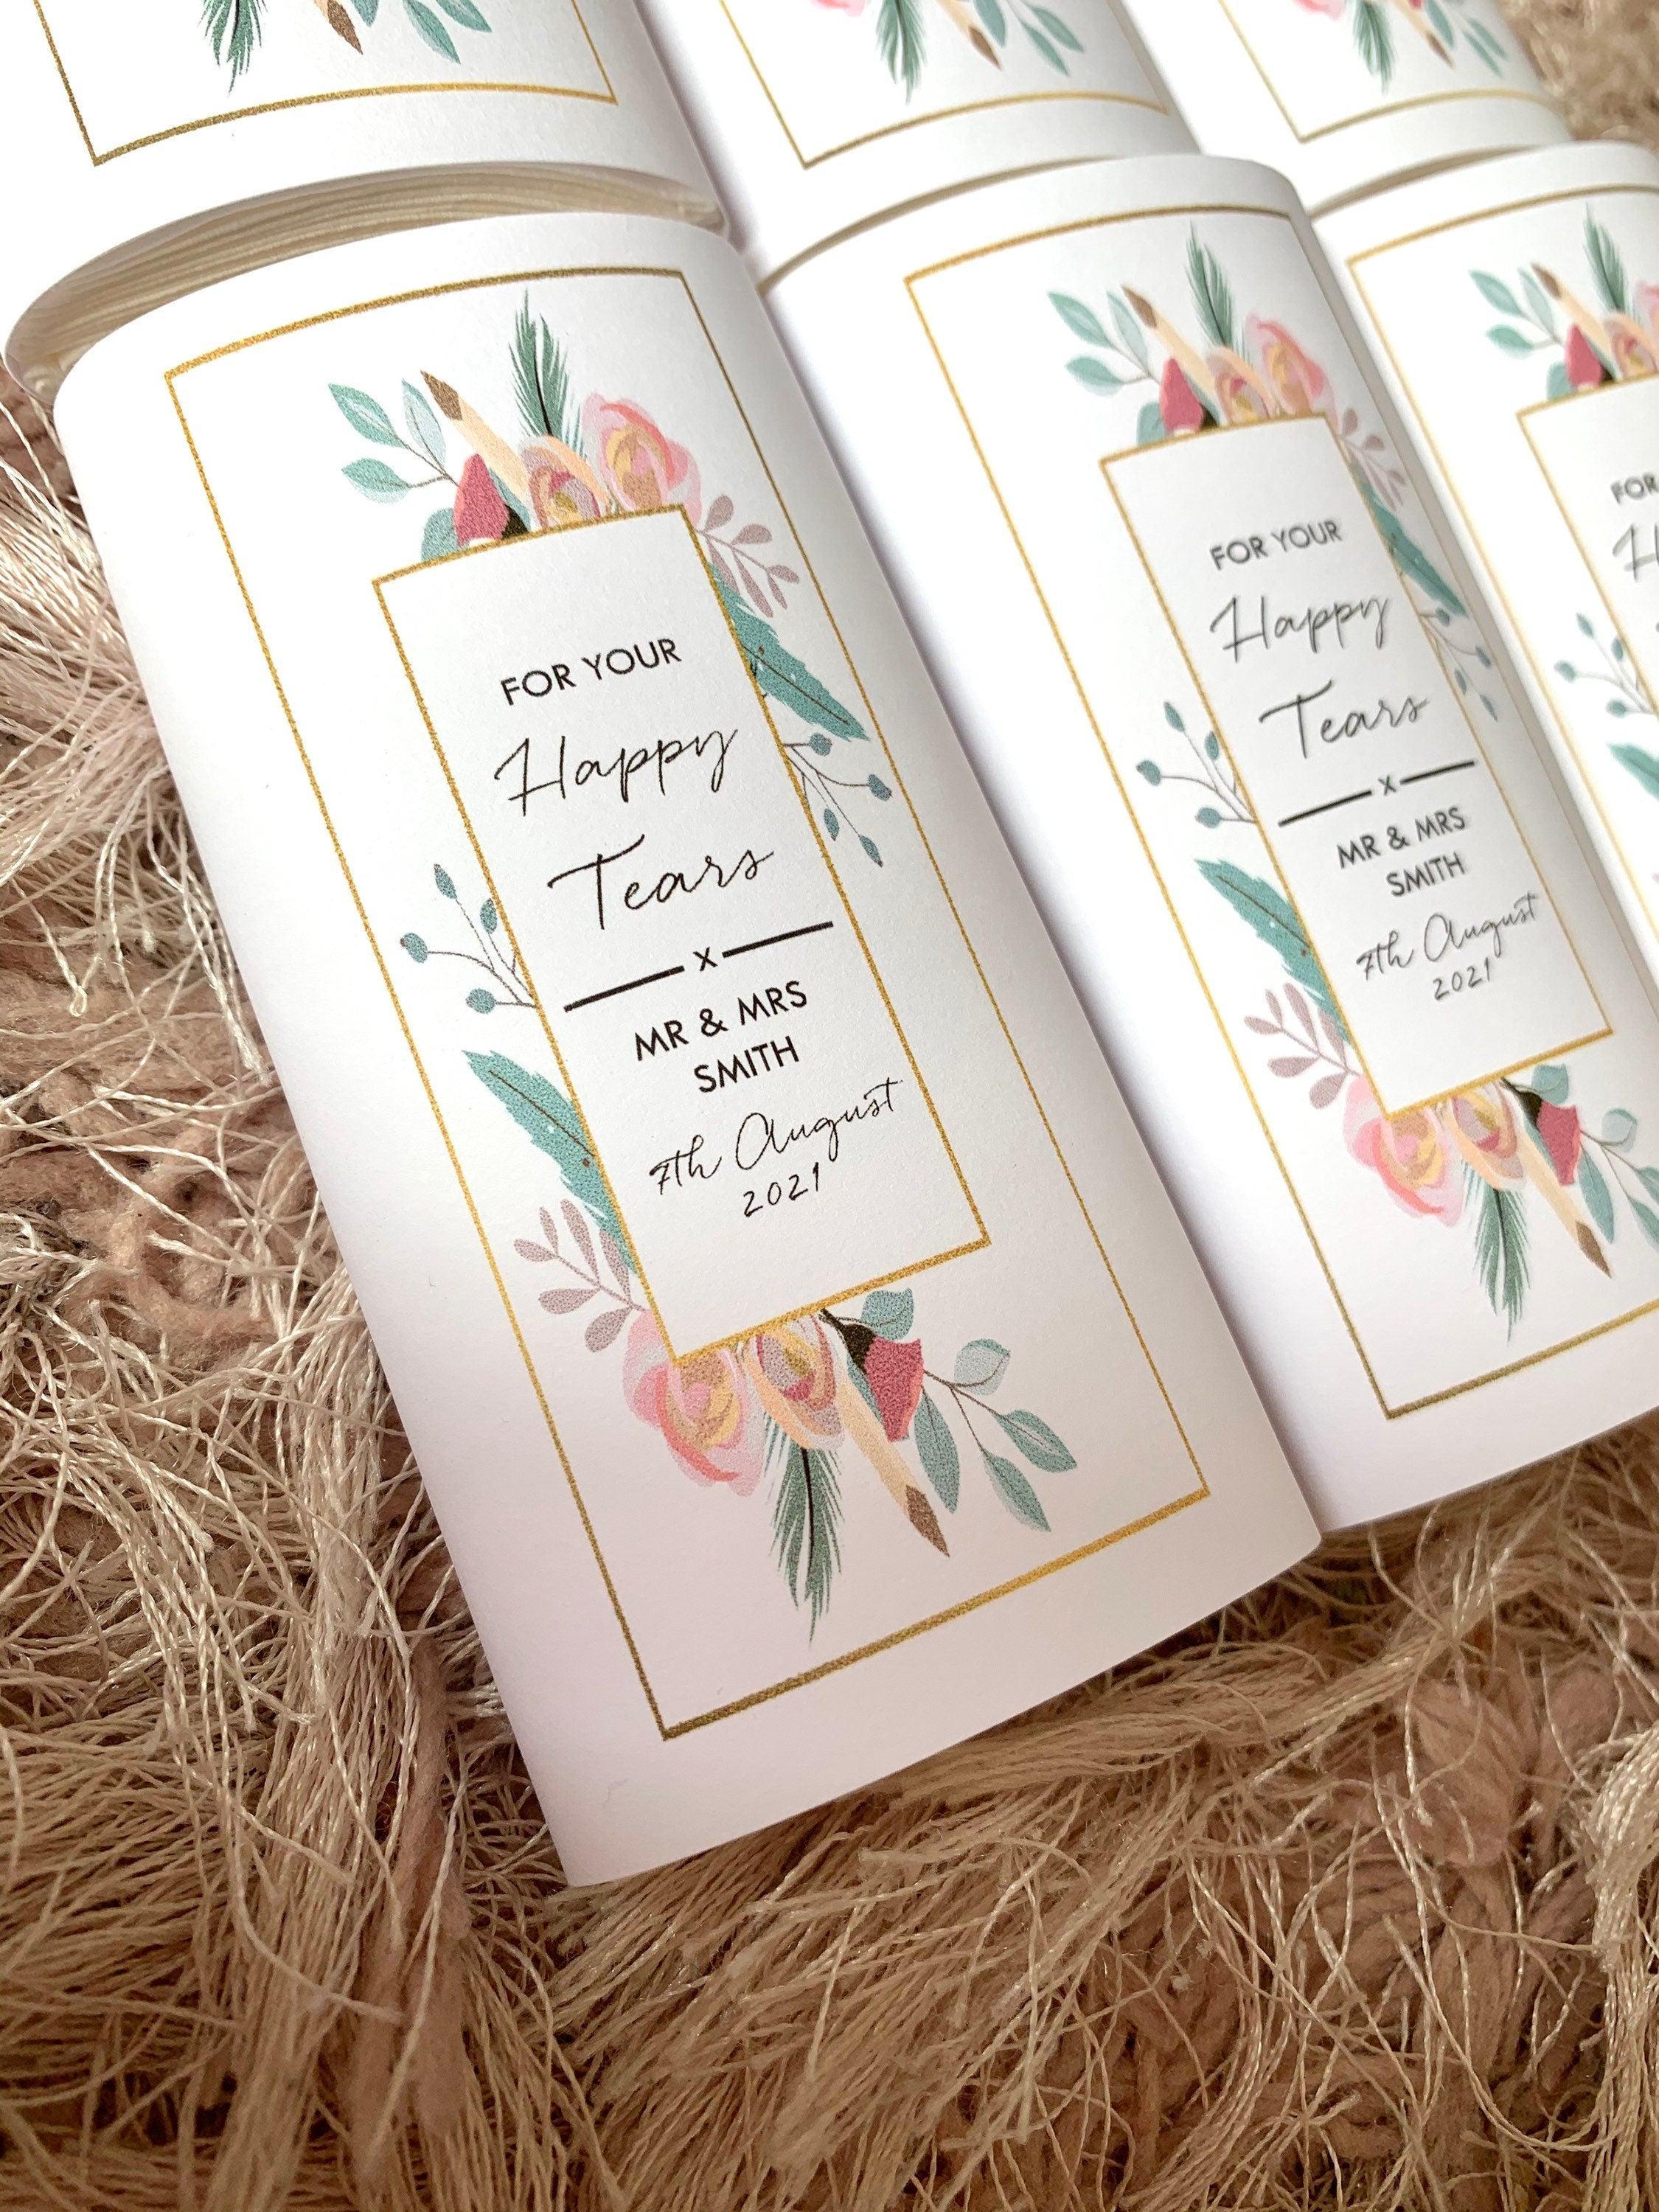 FOR YOUR
Happy
Tears
x
MR & MRS
SMITH
7th August
2021
FOR YOUR
Happy
Tears
x
MR & MRS
SMITH
7th August
2021
FOR